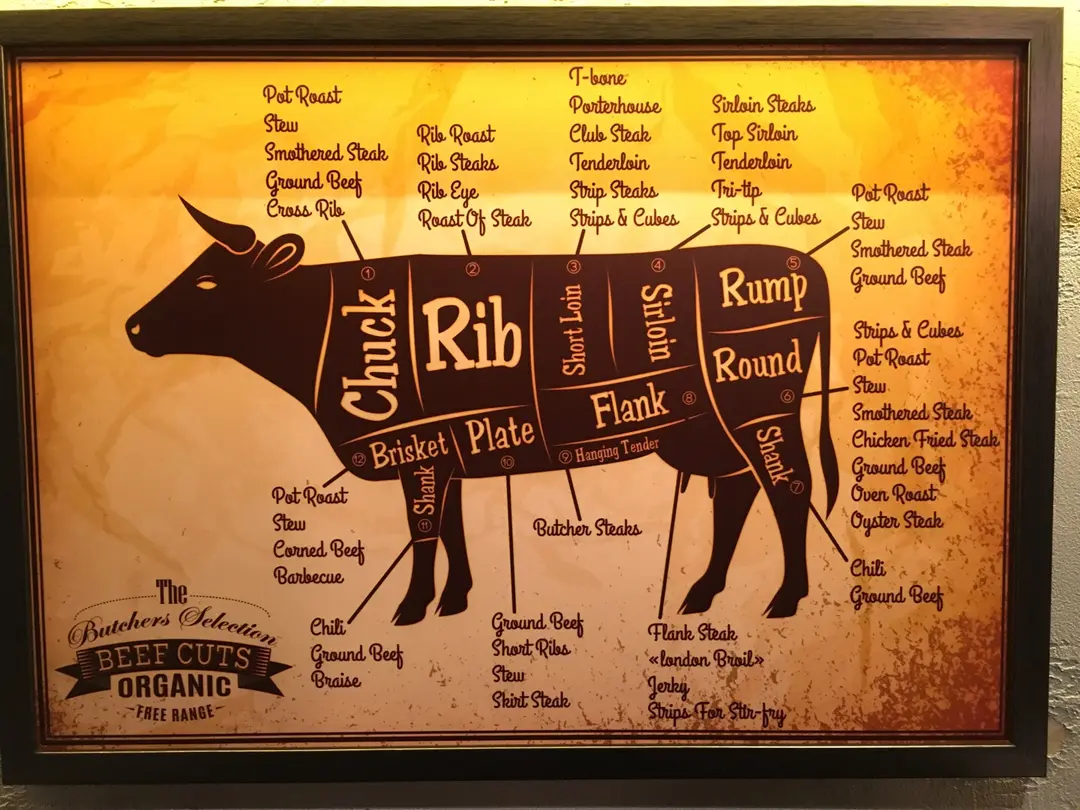 Pot Roast
Stew
Smothered Steak
Ground Beef
Cross Rib
Rib Roast
Rib Steaks
Rib Eye
Roast Of Steak
T-bone
Porterhouse
Club Steak
Tenderloin
Strip Steaks
Strips & Cubes
Sirloin Steaks
Top Sirloin
Tenderloin
Tri-tip
Strips & Cubes
Pot Roast
Stew
Smothered Steak
Ground Beef
Strips & Cubes
Pot Roast
Stew
Smothered Steak
Chicken Fried Steak
Ground Beef
Oven Roast
Oyster Steak
① Chuck
② Rib
③ Short Loin
④ Sirloin
⑤ Rump
Round ⑥
Flank ⑧
⑨ Hanging Tender
Plate ⑩
⑫ Brisket
Shank ⑪
Shank ⑦
Pot Roast
Stew
Corned Beef
Barbecue
Butcher Steaks
Chili
Ground Beef
Chili
Ground Beef
Braise
Ground Beef
Short Ribs
Stew
Skirt Steak
Flank Steak
«london Broil»
Jerky
Strips For Stir-fry
The
Butchers Selection
BEEF CUTS
ORGANIC
FREE RANGE